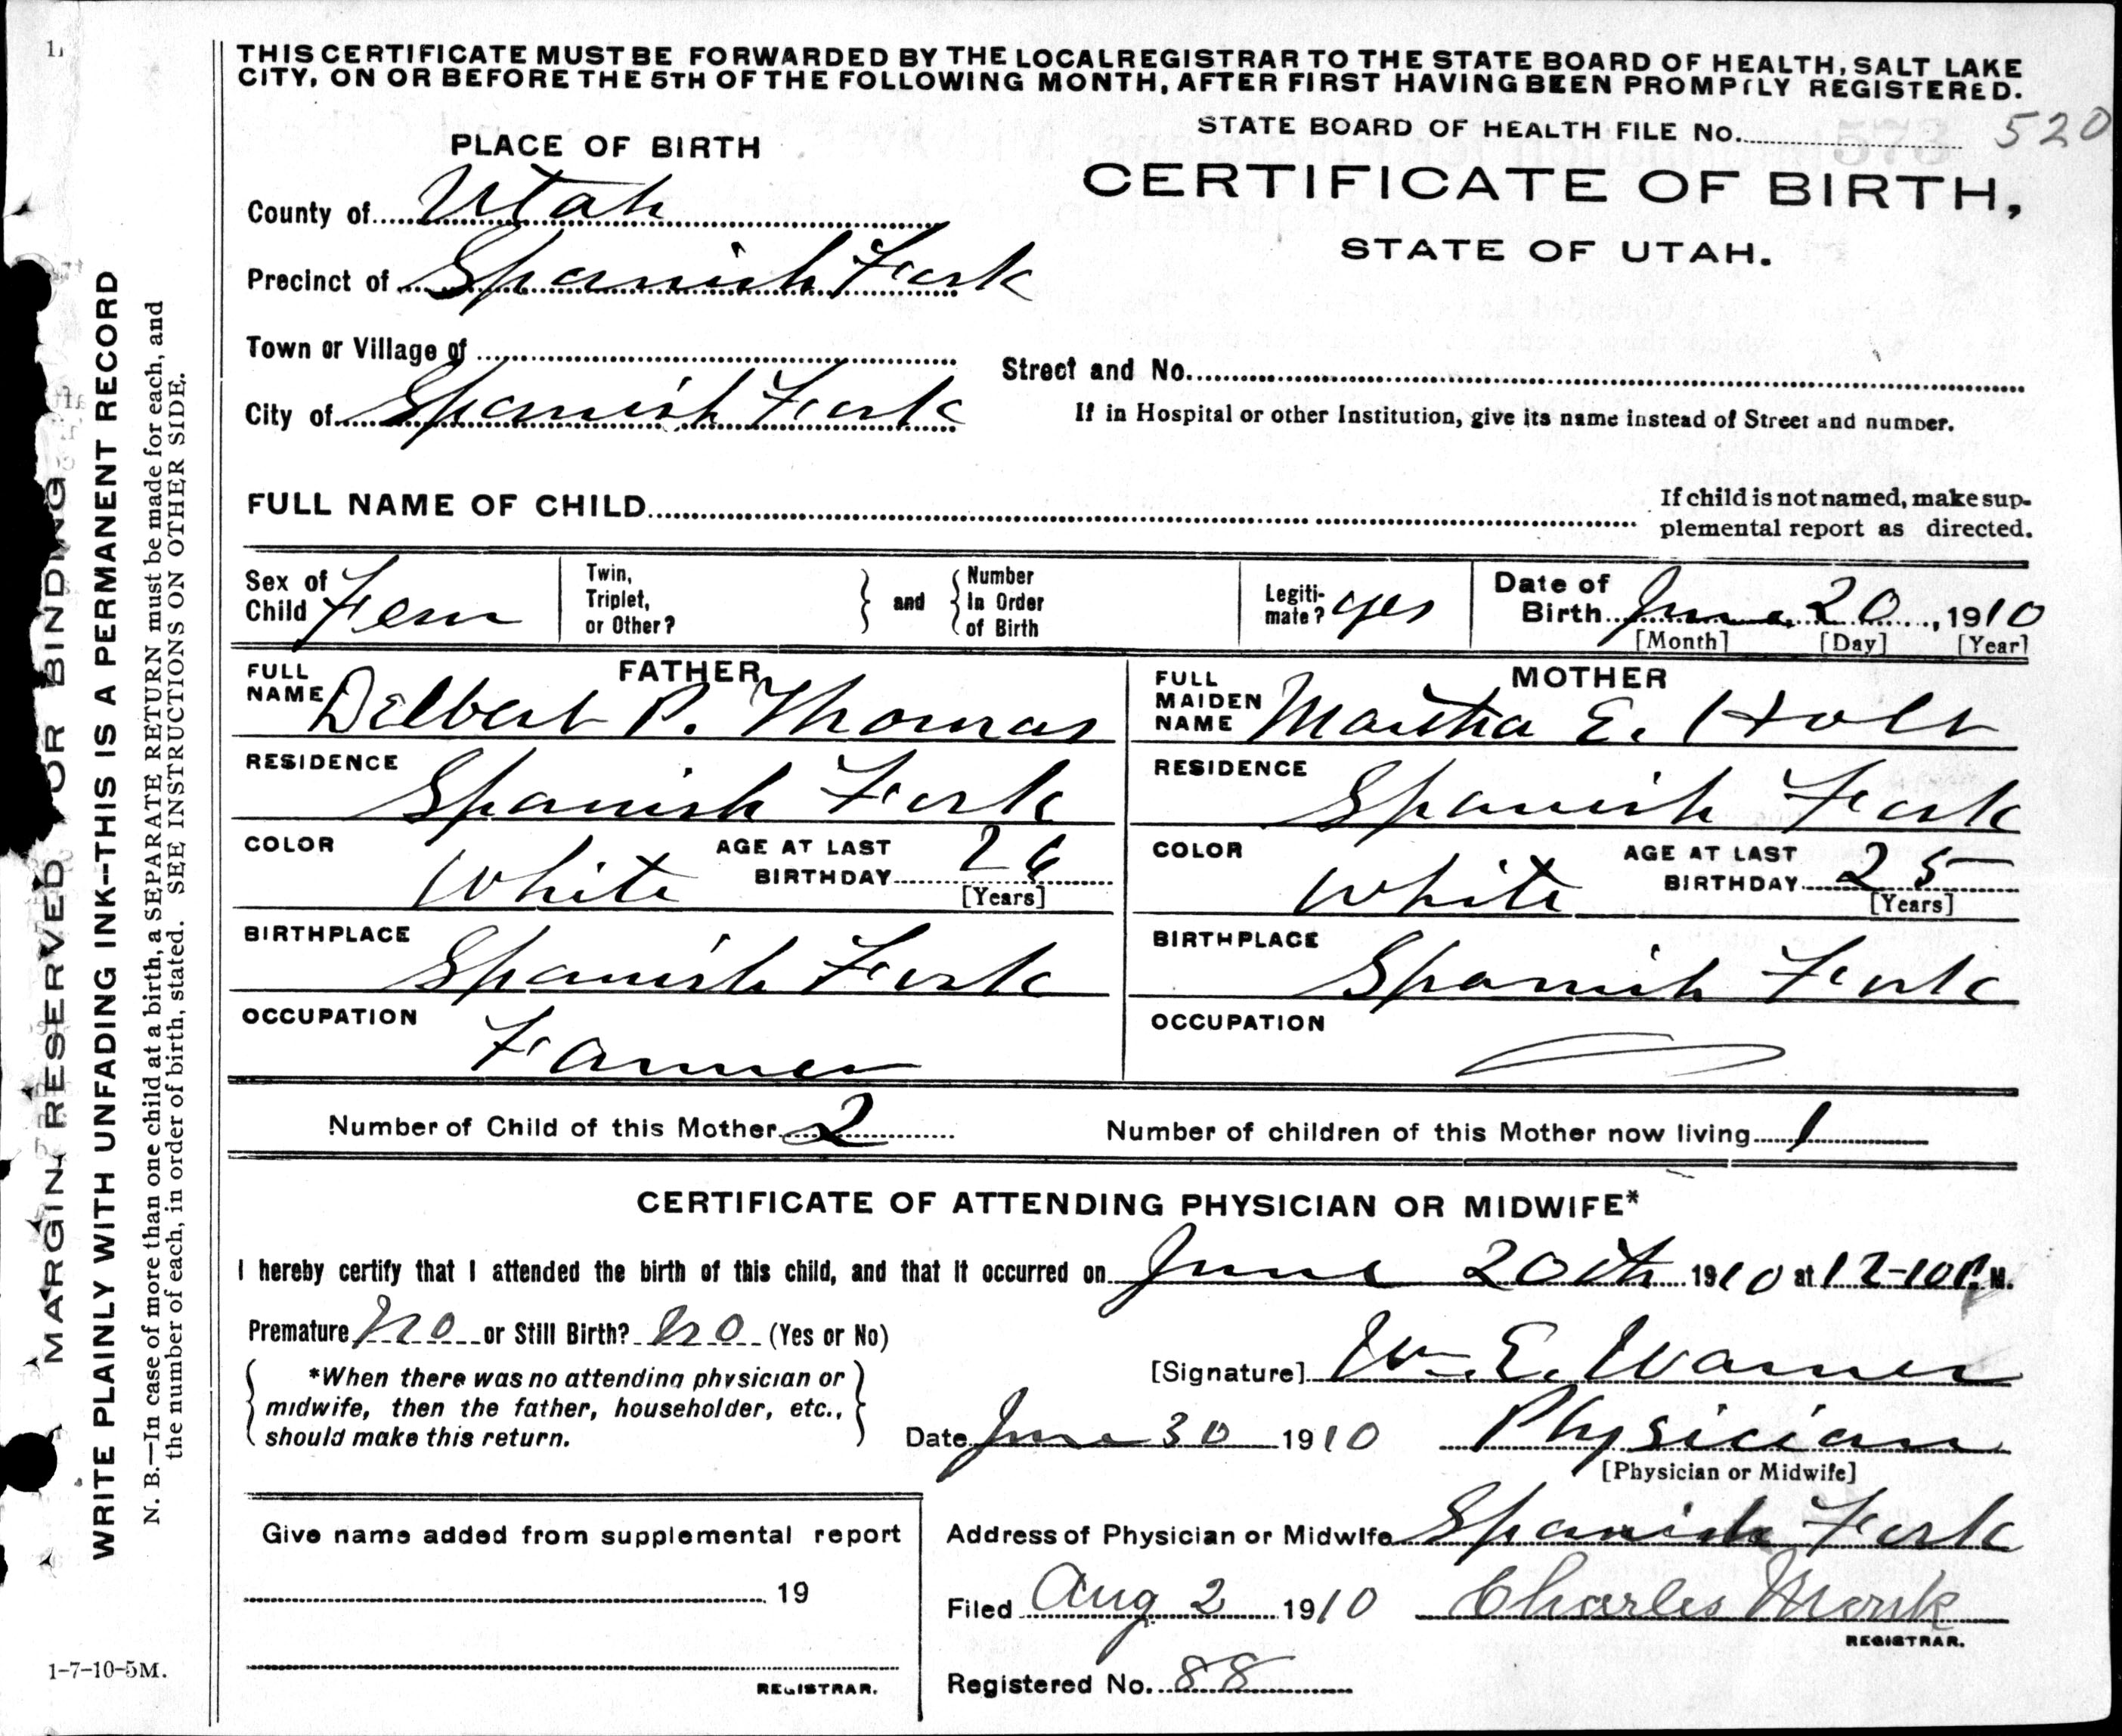 THIS CERTIFICATE MUST BE FORWARDED BY THE LOCAL REGISTRAR TO THE STATE BOARD OF HEALTH, SALT LAKE
CITY, ON OR BEFORE THE 5TH OF THE FOLLOWING MONTH, AFTER FIRST HAVING BEEN PROMPTLY REGISTERED.
STATE BOARD OF HEALTH FILE No. 520
PLACE OF BIRTH
CERTIFICATE OF BIRTH,
STATE OF UTAH.
County of Utah
Precinct of Spanish Fork
Town or Village of
Street and No.
City of Spanish Fork
If in Hospital or other Institution, give its name instead of Street and number.
FULL NAME OF CHILD
If child is not named, make sup-
plemental report as directed.
Sex of Child Fem
Twin, Triplet, or Other?
and
Number In Order of Birth
Legiti-mate? yes
Date of Birth June 20, 1910
[Month] [Day] [Year]
FATHER
FULL NAME Delbert P. Thomas
RESIDENCE
Spanish Fork
COLOR White AGE AT LAST BIRTHDAY 26
[Years]
BIRTHPLACE
Spanish Fork
OCCUPATION
Farmer
MOTHER
FULL MAIDEN NAME Martha E. Holt
RESIDENCE
Spanish Fork
COLOR White AGE AT LAST BIRTHDAY 25
[Years]
BIRTHPLACE
Spanish Fork
OCCUPATION
Number of Child of this Mother 2
Number of children of this Mother now living 1
CERTIFICATE OF ATTENDING PHYSICIAN OR MIDWIFE*
I hereby certify that I attended the birth of this child, and that it occurred on June 20th 1910 at 12-10 P. M.
Premature no or Still Birth? no (Yes or No)
*When there was no attending physician or
midwife, then the father, householder, etc.,
should make this return.
[Signature] Wm. E. Warner
Date June 30 1910 Physician
[Physician or Midwife]
Give name added from supplemental report
19
REGISTRAR.
Address of Physician or Midwife Spanish Fork
Filed Aug 2 1910 Charles Monk
REGISTRAR.
Registered No. 88
MARGIN RESERVED FOR BINDING
WRITE PLAINLY WITH UNFADING INK--THIS IS A PERMANENT RECORD
N. B.—In case of more than one child at a birth, a SEPARATE RETURN must be made for each, and
the number of each, in order of birth, stated. SEE INSTRUCTIONS ON OTHER SIDE.
1-7-10-5M.